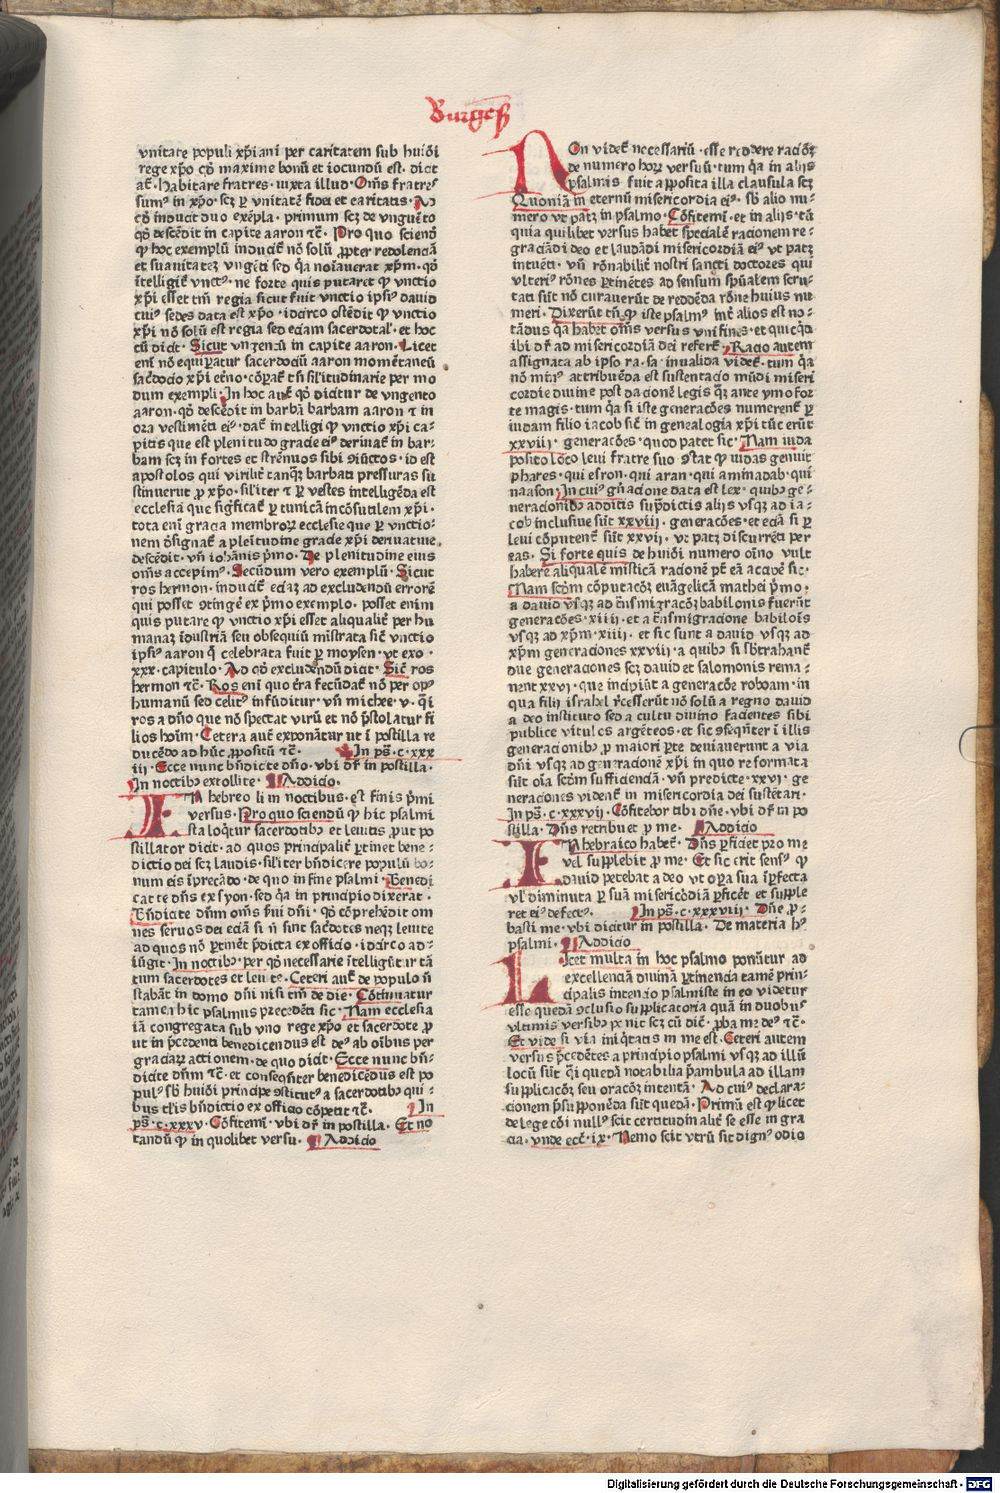 Burgeñ
vnitate populi xp̃iani per caritatem sub huiõi
rege xp̃o qð maxime bonũ et iocundũ est. dicit
aũt· habitare fratres· iuxta illud· Om̃s fratres
sumꝰ in xp̃o· scꝫ ꝑ vnitatẽ fidei et caritatis. Ad
qð inducit duo exẽpla· primum scꝫ de vnguẽto
qð descẽdit in capite aaron tc̃· Pro quo sciendũ
ꝙ hoc exemplũ inducit̃ nõ solũ ꝓpter redolenciã
et suauitatẽ vngẽti sed qꝛ noĩauerat xp̃m· qð
ĩtelligit̃ vnctꝰ· ne forte quis putaret ꝙ vnctio
xp̃i esset tm̃ regia sicut fuit vnctio ipsiꝰ dauid
cuiꝰ sedes data est xp̃o· idcirco oñdit ꝙ vnctio
xp̃i nõ solũ est regia sed eciam sacerdotal'· et hoc
cũ dicit· Sicut vngentũ in capite aaron· Licet
enĩ nõ equiꝑatur sacerdociũ aaron momẽtaneũ
sac̃docio xp̃i et̃no· cõꝑat̃ tñ sil'itudinarie per mo
dum exempli· In hoc aut̃ qð dicitur de vngento
aaron· qð descẽdit in barbã barbam aaron ⁊ in
ora vestimẽti eiꝰ· dat̃ intelligi ꝙ vnctio xp̃i ca⸗
pitis que est plenitudo gracie eiꝰ deriuat̃ in bar⸗
bam scꝫ in fortes et strẽnuos sibi ꝯiũctos· id est
apostolos qui virilit̃ tanqꝫ barbati pressuras su
stinuerũt ꝓ xp̃o· sil'iter ⁊ ꝑ vestes intelligẽda est
ecclesia que sig̃ficat̃ ꝑ tunicã incõsutilem xp̃i·
tota enĩ gracia membroꝝ ecclesie que ꝑ vnctio⸗
nem dẽsignat̃ a plenitudine gracie xp̃i deriuatiue
descẽdit· vñ iohãnis p̃mo· De plenitudine eius
om̃s accepimꝰ· Secũdum vero exemplũ· Sicut
ros hermon· inducit̃ eciaꝫ ad excludendũ errorẽ
qui posset ꝯtingẽ ex p̃mo exemplo· posset enim
quis putare ꝙ vnctio xp̃i esset aliqualit̃ per hu
manaꝫ ĩdustriã seu obsequiũ mĩstrata sic̃ vnctio
ipsiꝰ aaron q̃ celebrata fuit ꝑ moysen· vt exo·
xxx· capitulo· Ad qð excludendũ dicit· Sic̃ ros
hermon tc̃· Ros enĩ quo t̃ra fecũdat̃ nõ per opꝰ
humanũ sed celitꝰ infũditur· vñ michee· v· q̃i
ros a dño que nõ spectat virũ et nõ p̃stolatur fi
lios hoĩm· Cetera aut̃ exponãtur ut ĩ postilla re
ducẽdo ad hũc ꝓpositũ tc̃· In pš· c· xxx
iii· Ecce nunc bñdicte dño· vbi dr̃ in postilla·
In noctibꝫ extollite· Addicio·
IN hebreo li in noctibus· est finis p̃mi
versus· Pro quo sciendũ ꝙ hic psalmꝰ
sta loq̃tur sacerdotibꝫ et leuitis ꝓut po
stillator dicit· ad quos principalit̃ ꝑtinet bene⸗
dictio dei scꝫ laudis· sil'iter bñdicere populũ bo⸗
num eis ĩprecãdo· de quo in fine psalmi· Benedi
cat te dñs ex syon· sed qꝛ in principio dixerat·
Bñdicite dñm om̃s s̃ui dñi· qð cõprehẽdit om
nes seruos dei eciã si ñ sint sac̃dotes neqꝫ leuite
ad quos nõ ꝑtinet p̃dicta ex officio· idcirco ad⸗
iũgit· In noctibꝫ· per qð necessarie ĩtelligũtur tã
tum sacerdotes et leuite· Ceteri aut̃ de populo ñ
stabãt in domo dñi nisi tm̃ de die· Cõtinuatur
tamen hic psalmus precedẽti sic· Nam ecclesia
iã congregata sub vno rege xp̃o et sacerdote ꝓ
ut in p̃cedenti benedicendus est deꝰ ab oĩbus per
graciaꝝ actionem· de quo dicit· Ecce nunc bñ⸗
dicite dñm tc̃· et conseqñter benedicẽdus est po
pulꝰ sb̃ huiõi principe ꝯstitutꝰ a sacerdotibꝫ qui⸗
bus tl'is bñdictio ex officio cõpetit tc̃· In
pš· c· xxxv· Cõfitemĩ· vbi dr̃ in postilla· Et no
tandũ ꝙ in quolibet versu· Addicio
NOn videt̃ necessariũ· esse reddere raciõꝫ
de numero hoꝝ versuũ· tum qꝛ in alijs
psalmis fuit apposita illa clausula scꝫ
Quoniã in eternũ misericordia eiꝰ· sb̃ alio nu⸗
mero vt patꝫ in psalmo· Cõfitemĩ· et in alijs· tũ
quia quilibet versus habet specialẽ racionem re⸗
graciãdi deo et laudãdi misericordiã eiꝰ vt patꝫ
intuẽti· vñ rõnabilit̃ nostri sancti doctores qui
vlteriꝰ rõnes ꝑtinẽtes ad sensum sp̃ualem scru⸗
tati sũt nõ curauerũt de reddẽda rõne huius nu
meri· Dixerũt tñ ꝙ iste psalmꝰ int̃ alios est no⸗
tãdus qꝛ habet om̃s versus vnifines· et quicq̃d
ibi dr̃ ad misericordiã dei refert̃· Racio autem
assignata ab ipso ra· sa· inualida videt̃· tum qꝛ
nõ miꝰ attribuẽda est sustentacio mũdi miseri
cordie diuine post dacionẽ legis qꝫ ante ymo for
te magis· tum qꝛ si iste generacões numerent̃ ꝑ
iudam filio iacob sic̃ in genealogia xp̃i tũc erũt
xxvii· generacões· quod patet sic· Nam iuda
posito loco leui fratre suo ꝯstat ꝙ iudas genuit
phares· qui esron· qui aran· qui aminadab· qui
naason· In cuiꝰ gñacione data est lex· quibꝫ ge⸗
neracionibꝫ additis sup̃dictis alijs vsqꝫ ad ia⸗
cob inclusiue sũt xxviii· generacões· et eciã si ꝑ
leui cõputent̃ sũt xxvii· vt patꝫ discurrẽti per
eas· Si forte quis de huiõi numero oĩno vult
habere aliqualẽ misticã racionẽ pt̃ eã accipẽ sic·
Nam scdm̃ cõputacõꝫ euãgelicã mathei p̃mo·
a dauid vsqꝫ ad t̃nsmigracõꝫ babilonis fuerũt
generacões· xiiii· et a t̃nsmigracione babilois
vsqꝫ ad xp̃m· xiiii· et sic sunt a dauid vsqꝫ ad
xp̃m generaciones xxvii· a quibꝫ si sb̃trahant̃
due generaciones scꝫ dauid et salomonis rema⸗
nent xxvi· que incipiũt a generacõe roboam· in
qua filij israhel r̃cesserũt nõ solũ a regno dauid
a deo instituto sed a cultu diuino facientes sibi
publice vitulos argẽteos· et sic ꝯseq̃nter ĩ illis
generacionibꝫ ꝓ maiori ꝑte deuiauerunt a via
dñi vsqꝫ ad generacionẽ xp̃i in quo reformata
sũt oĩa scdm̃ sufficienciã· vñ predicte· xxvi· ge
neraciones vident̃ in misericordia dei sustẽtari·
In pš· c· xxxvii· Cõfitebor tibi dñe· vbi dr̃ in po
stilla· Dñs retribuet ꝓ me· Addicio
IN hebraico habet̃· Dñs ꝑficiet pro me
vel supplebit ꝓ me· Et sic erit sensꝰ ꝙ
dauid petebat a deo vt oꝑa sua ĩꝑfecta
vl' diminuta ꝑ suã misericõdiã ꝑficet̃ et supple
ret eiꝰ defectꝰ· In pš· c· xxxviii· Dñe ꝓ⸗
basti me· vbi dicitur in postilla· De materia hꝰ
psalmi· Addicio
LIcet multa in hoc psalmo ponũtur ad
excellenciã diuinã ꝑtinencia tamẽ prin⸗
cipalis intencio psalmiste in eo videtur
esse quedã ꝯclusio supplicatoria quã in duobꝰ
vltimis versibꝫ ponit scꝫ cũ dic̃t· ꝓba me deꝰ tc̃·
Et vide si via iniq̃tatis in me est· Ceteri autem
versus p̃cedẽtes a principio psalmi vsqꝫ ad illũ
locũ sũt q̃i quedã notabilia p̃ambula ad illam
supplicacõꝫ seu oracõꝫ intentã· Ad cuiꝰ declara⸗
cionem p̃supponẽda sũt quedã· Primũ est ꝙ licet
de lege cõi nullꝰ scit certitudin alit̃ se esse in gra
cia· vnde ecc̃· ix· Nemo scit vtrũ sit dignꝰ odio
Digitalisierung gefördert durch die Deutsche Forschungsgemeinschaft - DFG